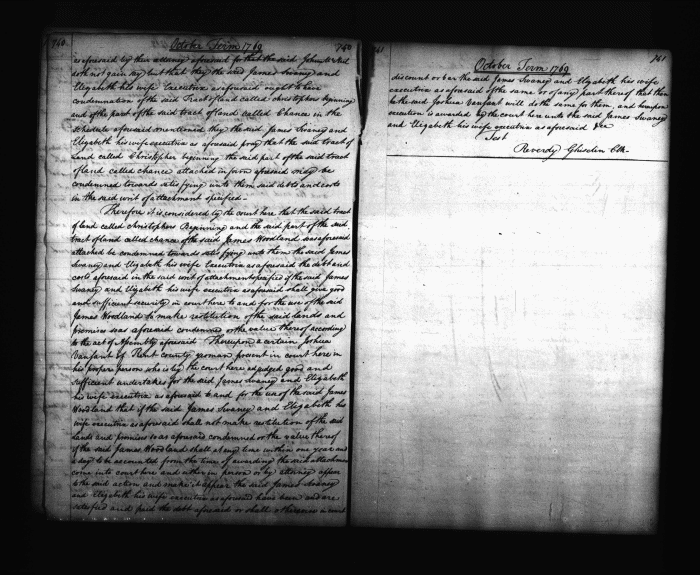 740
October Term 1769
740
as aforesaid by their attorney aforesaid for that the said John
doth not gain say but that they the said James Swaney and
Elizabeth his wife Executrix as aforesaid ought to have
condemnation of the said Tract of land called Christophers beginning
and of the part of the said tract of land called Chance in the
schedule aforesaid mentioned they the said James Swaney and
Elizabeth his wife executrix as aforesaid pray that the said tract of
land called Christopher beginning the said part of the said tract
of land called chance attached in form aforesaid may be
condemned towards satisfying unto them said debts and costs
in the said writ of attachment specified.
Therefore it is considered by the court here that the said tract
of land called Christophers Beginning and the said part of the said
tract of land called chance of the said James Woodland as aforesaid
attached be condemned towards satisfying unto them the said James
Swaney and Elizabeth his wife Executrix as aforesaid the debt and
costs aforesaid in the said writ of attachment specified if the said James
Swaney and Elizabeth his wife executrix as aforesaid shall give good
and sufficient security in court here to and for the use of the said
James Woodland to make restitution of the said lands and
premises as aforesaid condemned or the value thereof according
to the act of Assembly aforesaid Thereupon a certain Joshua
Vanfant of Kent county yeoman present in court here in
his proper person who is by the court here adjudged good and
sufficient undertakes for the said James Swaney and Elizabeth
his wife executrix as aforesaid to and for the use of the said James
Woodland that if the said James Swaney and Elizabeth his
wife executrix as aforesaid shall not make restitution of the said
lands and premises so as aforesaid condemned or the value thereof
if the said James Woodland shall at any time within one year and
a day to be accounted from the time of awarding the said attachment
come into court here and either in person or by attorney appear
to the said action and make it appear the said James Swaney
and Elizabeth his wife executrix as aforesaid have been and are
satisfied and paid the debt aforesaid or shall otherwise in court
741
October Term 1769
741
discount or bar the said James Swaney and Elizabeth his wife
executrix as aforesaid of the same or of any part thereof that then
he the said Joshua Vanfant will do the same for them, and hereupon
execution is awarded by the court here unto the said James Swaney
and Elizabeth his wife executrix as aforesaid &ca
Test
Reverdy Ghiselin Clk